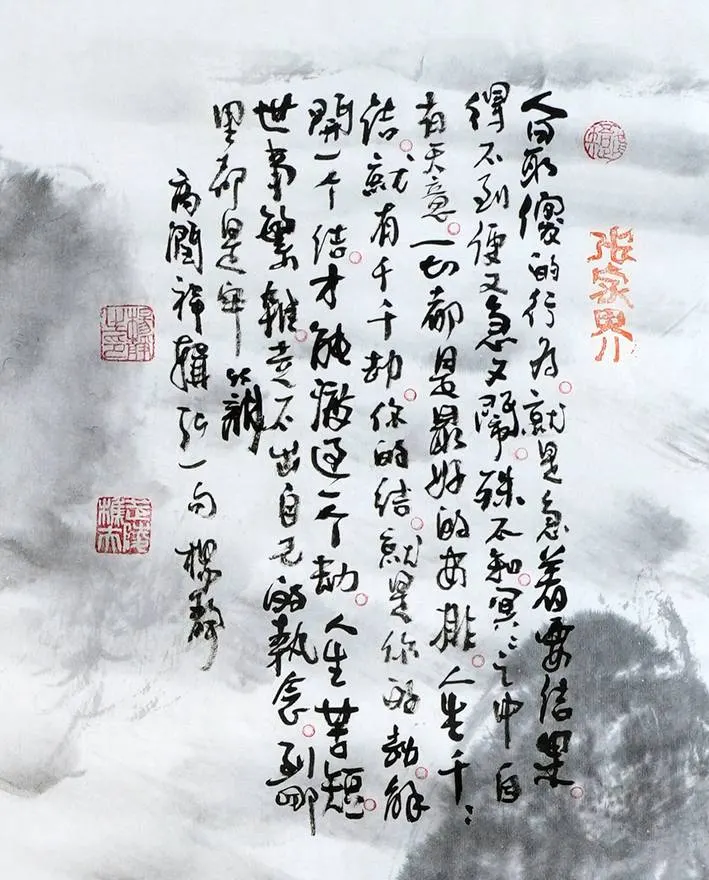 张家界
人最傻的行为。就是急着要结果。
得不到便又急又閙。殊不知。冥冥之中自
有天意。一切都是最好的安排。人生千千
结。就有千千劫。你的结。就是你的劫。解
開一个结。才能渡过一个劫。人生苦短。
世事繁雜。走不出自己的執念。到哪
里都是牢籠
高潤祥輯弘一句